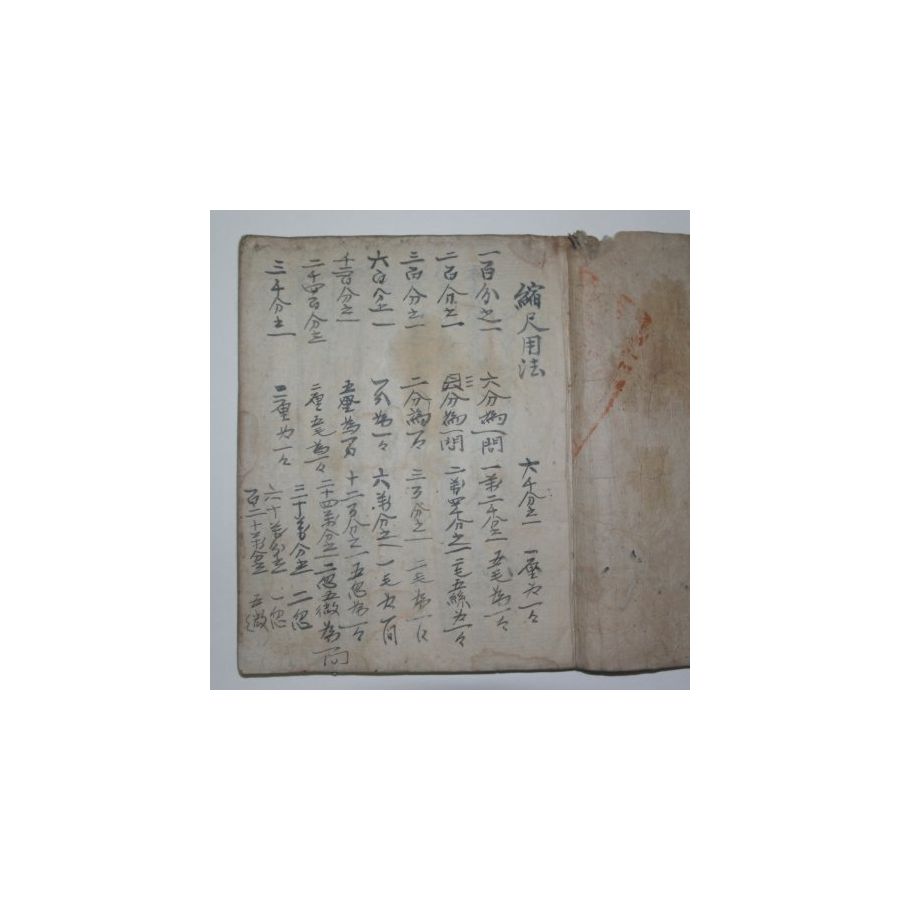 縮尺用法
六千分之一 一厘为一々
一百分之一 六分為一間
一萬二千分之一 五毛為一々
二百分之一 三分為一間
二萬四千分之一 二毛五絲为一々
三百分之一 二分為一々
三万分之一 二毛為一々
六百分之一 一分為一々
六萬分之一 一毛为一间
千二百分之一 五厘為一间
十二万分之一 五忽為一々
二千四百分之一 二厘五毛為一々
二十四萬分之一 二忽五微為一间
三千分之一 二厘为一々
三十萬分之一 二忽
六十萬分之一 一忽
百二十萬分之一 五微